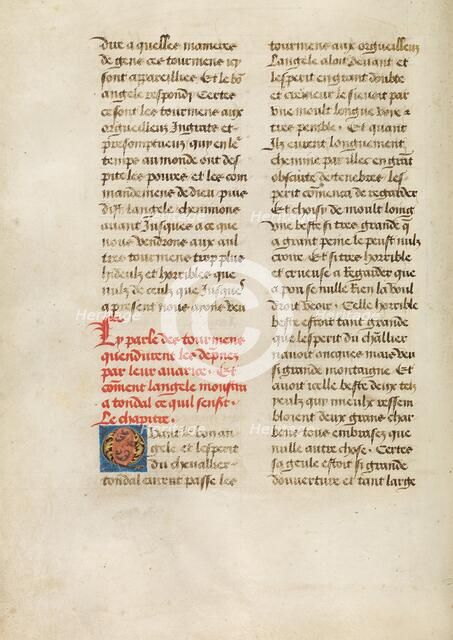 dire a quelles manieres
de gens ces tourmens icy
sont appareillies Et le bõ
angele respondi Certes
ce sont les tourmens aux
orgueilleux Ingrats et
presomptueux qui en leˢ
temps au monde ont des
pite les poures et les com
mandemens de dieu puis
dist langele cheminons
auant Jusques a ce que
nous vendrons aux aul
tres tourmens trop plus
hideulx et horribles que
nulz de ceulx que Jusques
a present nous ayons veu
Cy parle des tourmens
quendurent les dapnez
par leur auarice. Et
cõment langele monstra
a tondal ce quil sensit.
Le chapitre.
Quant le bon an
gele et lesperit
du cheuallier
tondal eurent passe les
tourmens aux orgueilleux
Langele aloit deuant et
lesperit en grant doubte
et cremeur le sieuoit par
vne moult longue voye et
tres penible. Et quant
Ilz eurent longuement
chemine par illec en grãt
obscurte de tenebres les
perit comenca de regarder
Et choisy de moult loing
Vne beste si tres grande q̃
a grant peine le peust nulz
croire Et si tres horrible
et crueuse a Regarder que
a pou se nulle Rien la vould
droit veoir. Celle horrible
beste estoit tant grande
que lesperit du chl̃lier
nauoit oncques mais veu
si grande montaigne. Et
auoit icelle beste deux telz
yeulx qui mieulx ressem
bloient deux grans char
bons tous embrasez que
nulle autre chose. Certes
sa geule estoit si grande
douuerture et tant large
Heritage
Heritage
Heritage
Heritage
Heritage